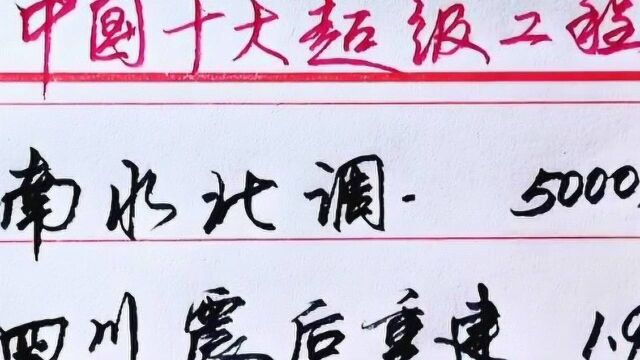 中國十大超级工程
南水北调. 5000
四川震后重建 1.9